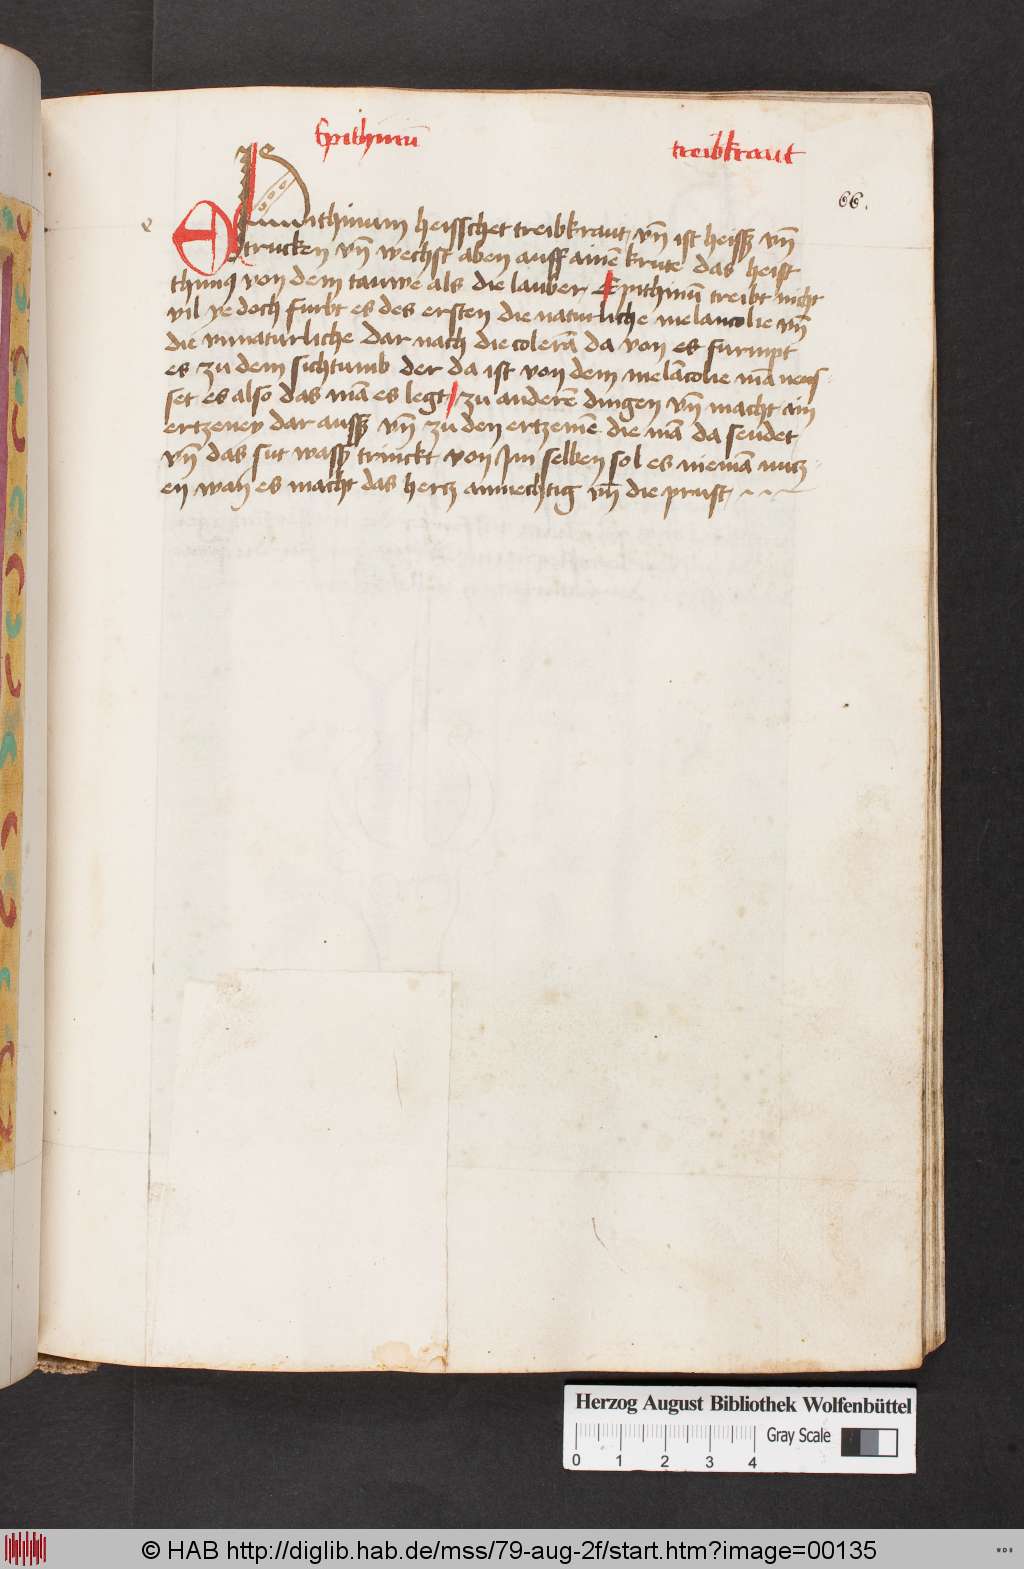 Epithimū treibkraut
66.
e
Epithimum heisschet treibkraut vn̄ ist heiss vn̄
trucken vn̄ wechst aben auff ainē krute das heist
thimꝰ von dem tauwe als die lauber Epithimū treibt nicht
vil ye doch furbt es des ersten die naturliche melancolie vn̄
die vnnaturliche dar nach die colerā da von es furmpt
es zu dem sichtumb der da ist von dem melācolie mā neus-
set es also das mā es legt / zu anderē dingen vn̄ macht ain
ertzeney dar auss vn̄ zu den ertzemē die mā da seudet
vn̄ das sut wass trinckt von Im selben sol es niemā nucz-
en wan es macht das hercz amechtig vn̄ die prust
Herzog August Bibliothek Wolfenbüttel
Gray Scale
0 1 2 3 4
© HAB http://diglib.hab.de/mss/79-aug-2f/start.htm?image=00135